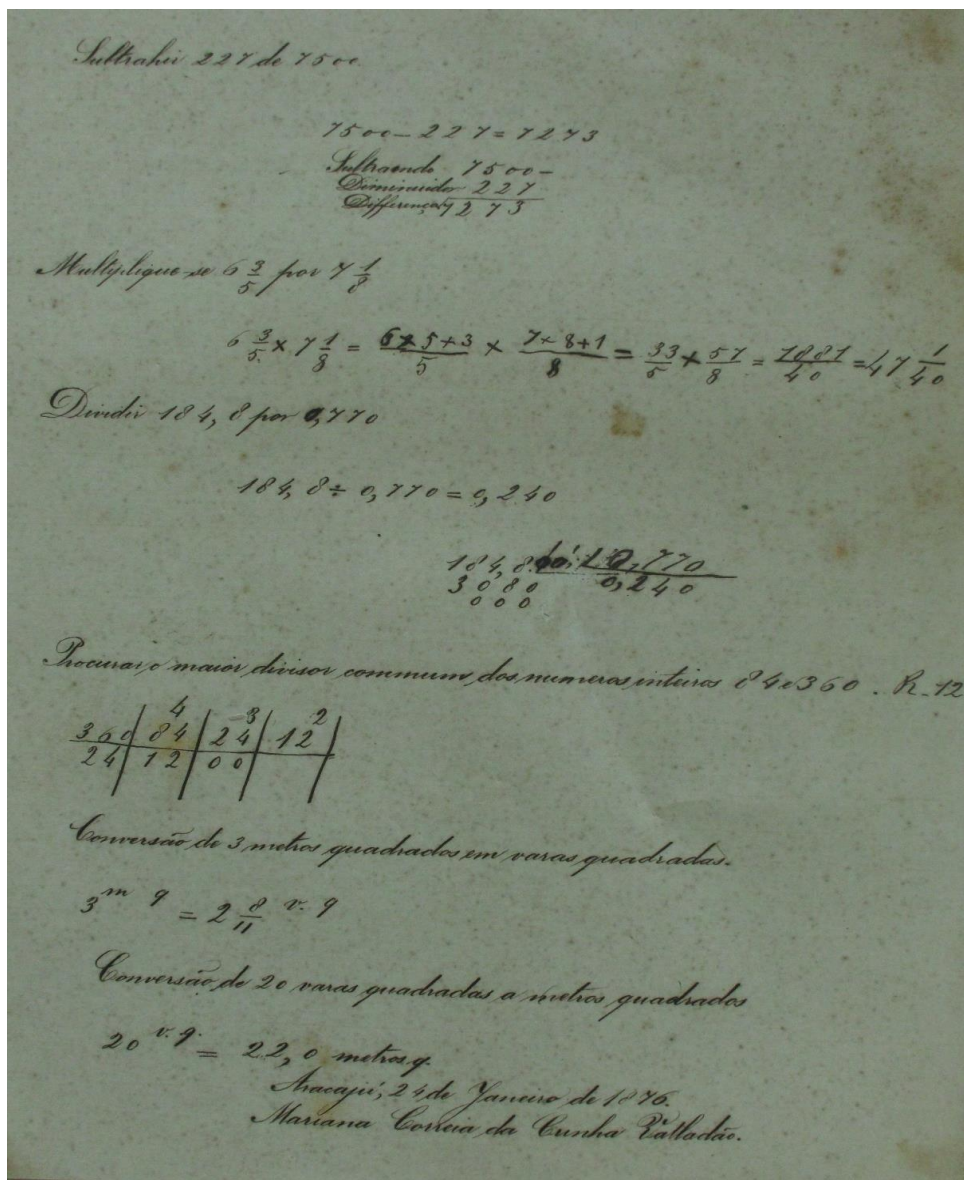 Subtrahir 227 de 7500
7500 - 227 = 7273
Subtraendo 7500 -
Diminuidor 227
Differença 7273
Multiplique-se 6 3/5 por 7 1/8
6 3/5 × 7 1/8 = 6×5+3/5 × 7×8+1/8 = 33/5 × 57/8 = 1881/40 = 47 1/40
Dividir 184,8 por 0,770
184,8 ÷ 0,770 = 0,240
184,8 0,770
3080 0,240
000
Procurar o maior divisor commum dos numeros inteiros 84 e 360. R. 12
4 3 2
360 84 24 12
24 12 00
Conversão de 3 metros quadrados em varas quadradas.
3 m q = 2 8/11 v. q
Conversão de 20 varas quadradas a metros quadrados
20 v. q. = 22,0 metros q.
Aracajú, 24 de Janeiro de 1876.
Mariana Correia da Cunha Valladão.